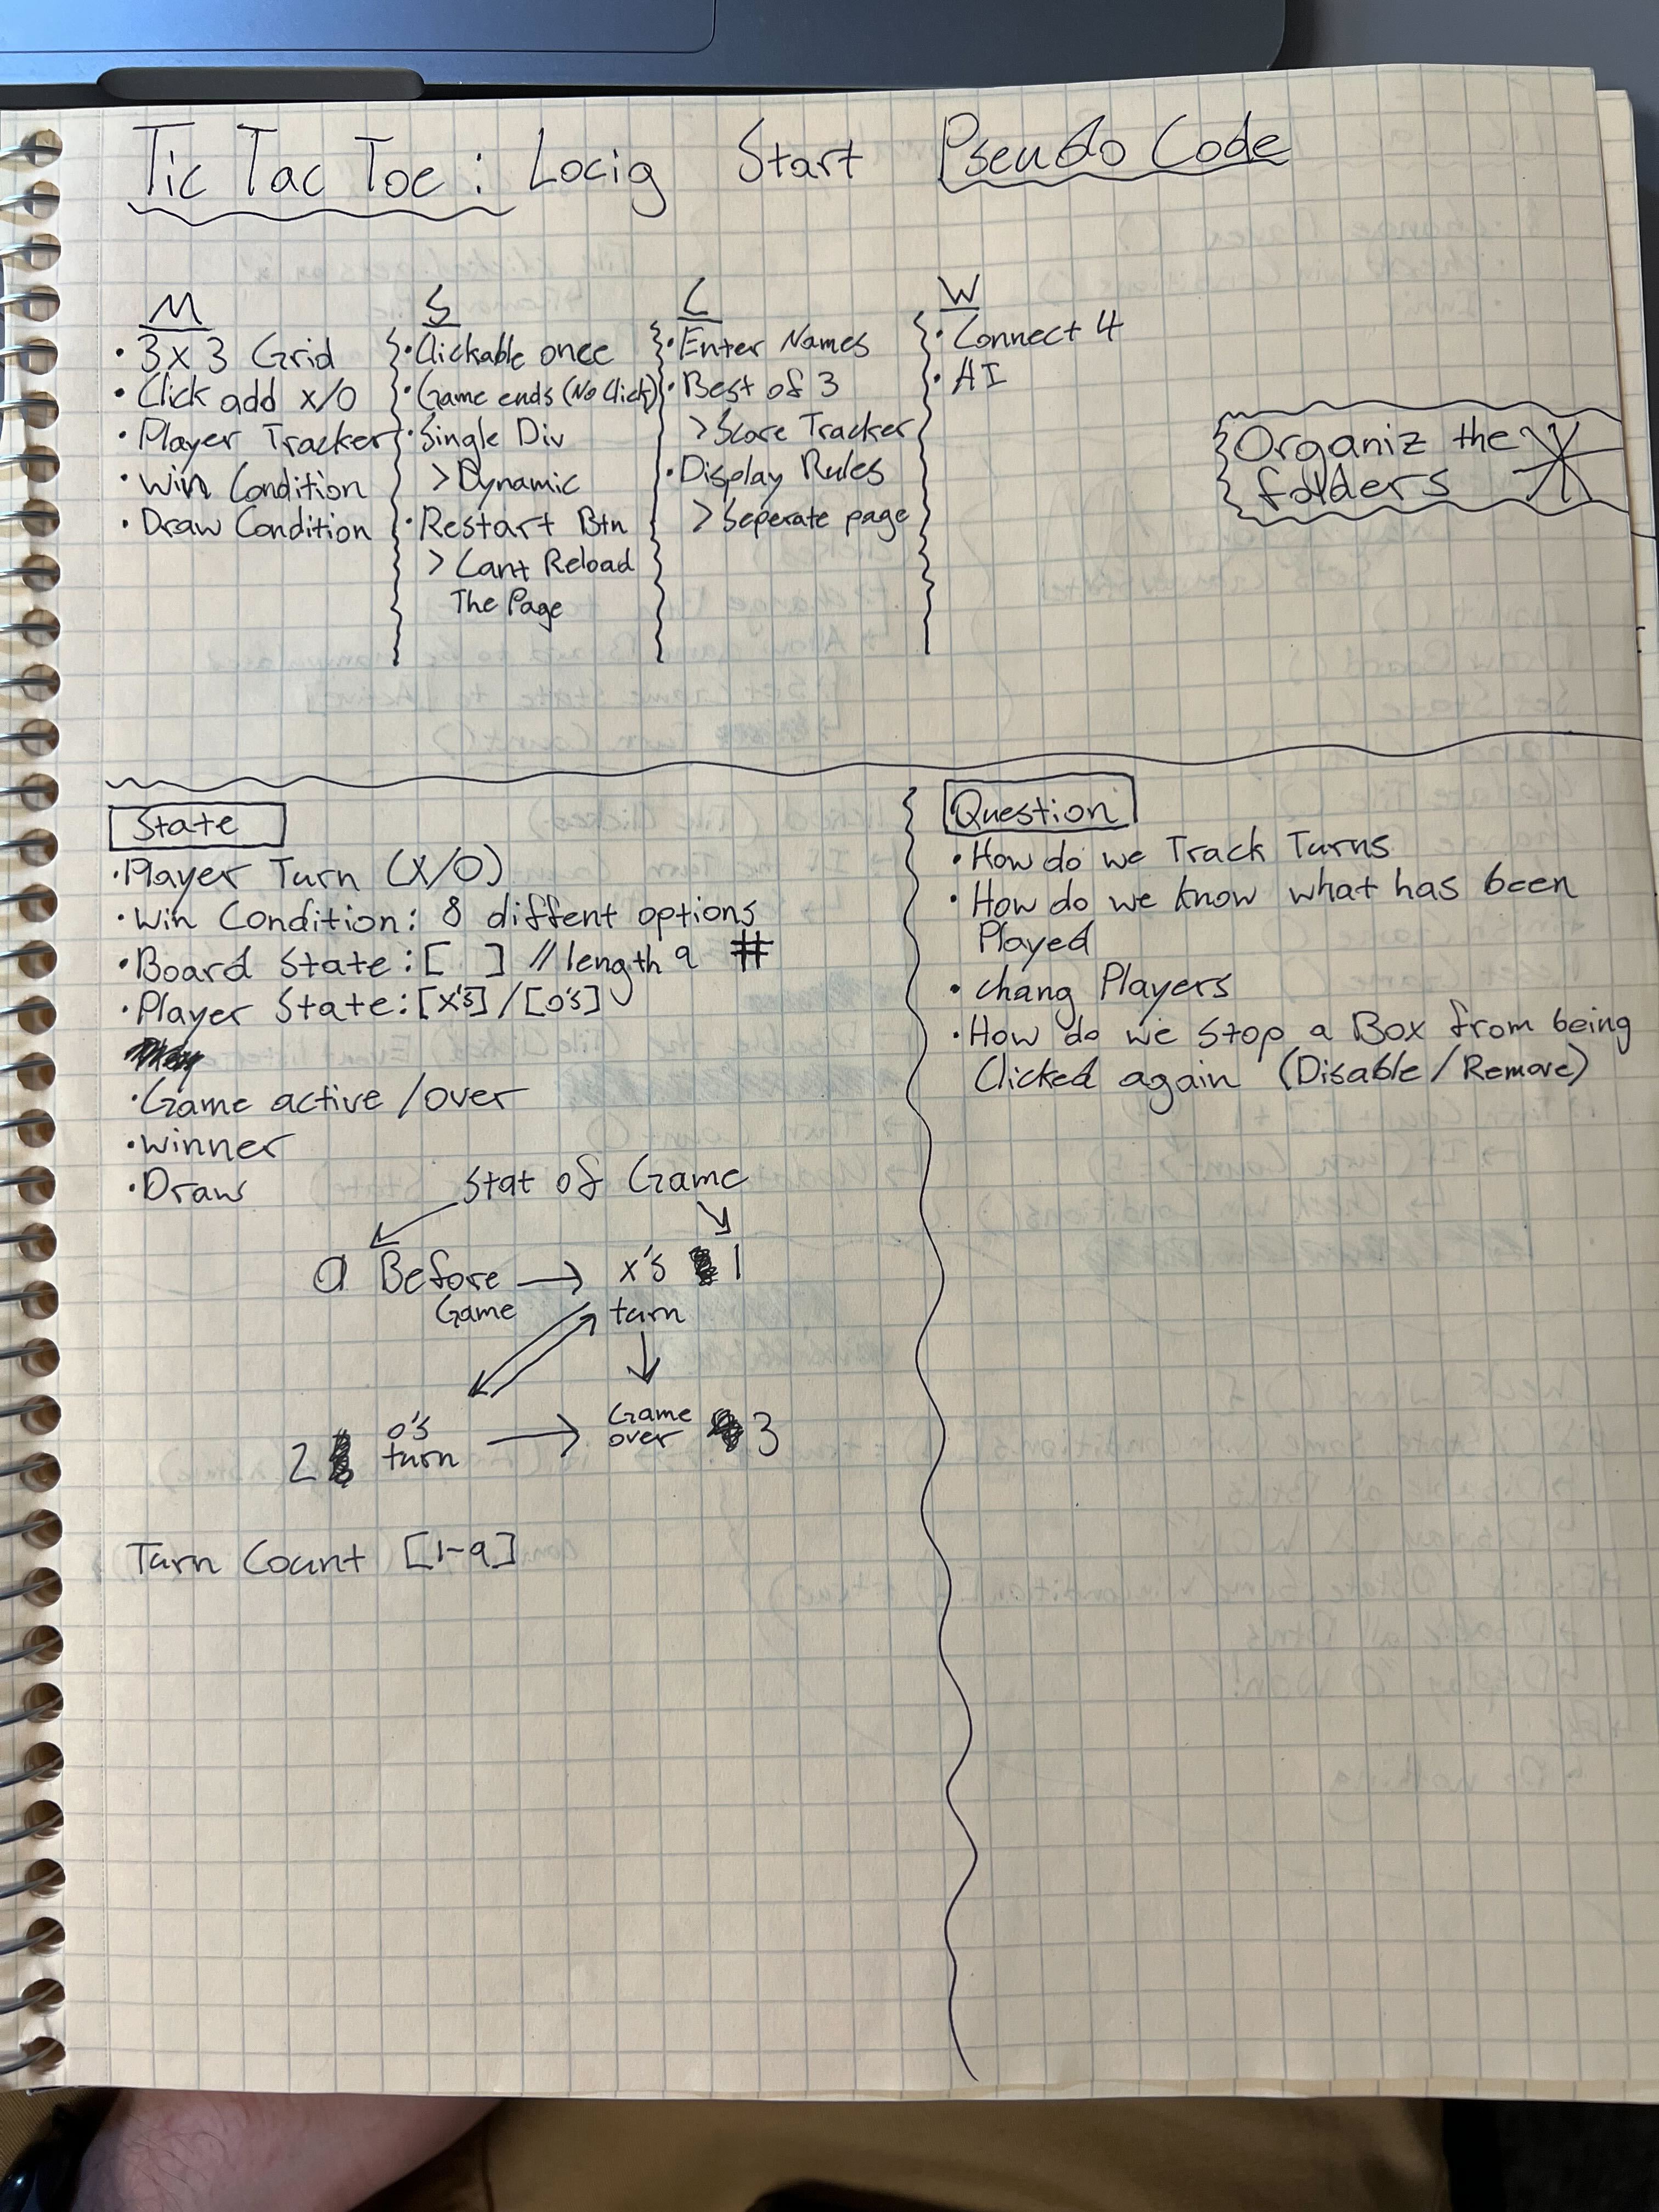 Tic Tac Toe: Locig Start Pseudo Code
M
• 3x3 Grid
• Click add x/O
• Player Tracker
• Win Condition
• Draw Condition
S
• Clickable once
• Game ends (No Click)
• Single Div
> Dynamic
• Restart Btn
> Cant Reload
The Page
C
• Enter Names
• Best of 3
> Score Tracker
• Display Rules
> Seperate page
W
• Connect 4
• AI
Organiz the
folders
State
• Player Turn (X/O)
• Win Condition: 8 diffent options
• Board State: [ ] // length 9 #
• Player State: [x's] / [o's]
• Game active / over
• winner
• Draw
Stat of Game
0 Before → x's 1
Game turn
o's
2 turn → Game over 3
Turn Count [1-9]
Question
• How do we Track Turns
• How do we know what has been
Played
• chang Players
• How do we stop a Box from being
Clicked again (Disable / Remove)